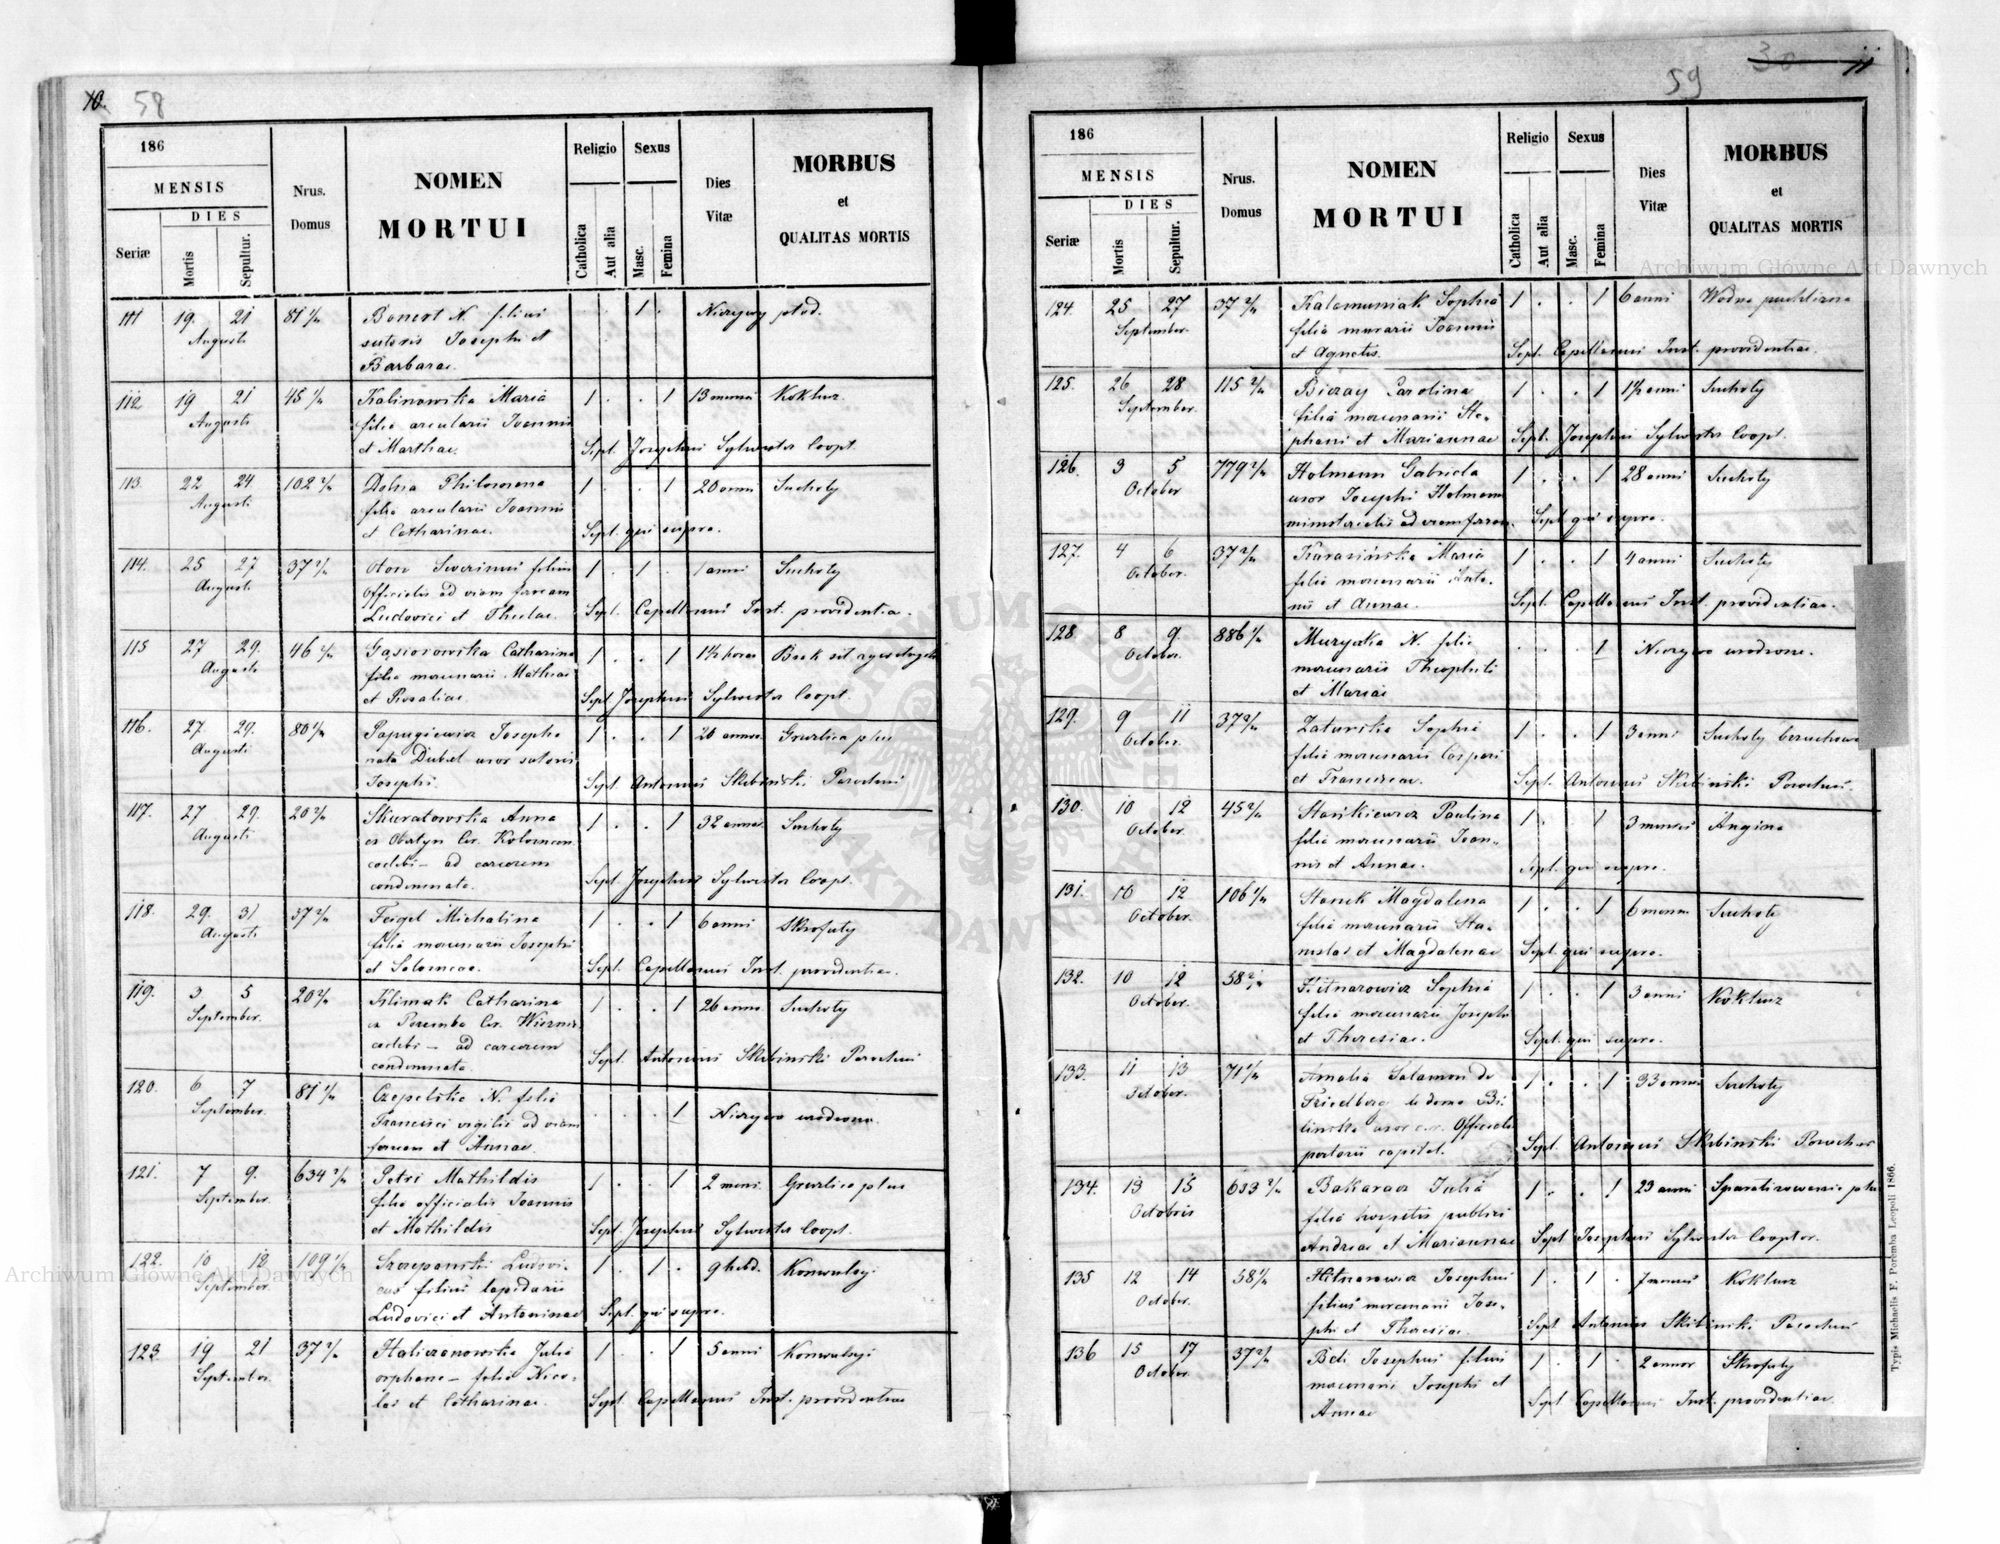 10. 58
186
MENSIS
DIES
Seriæ
Mortis
Sepultur.
Nrus. Domus
NOMEN
MORTUI
Religio
Catholica
Aut alia
Sexus
Masc.
Femina
Dies Vitæ
MORBUS
et
QUALITAS MORTIS
111 19. 21 81 Bonert N. filius 1 Nieżywy płod.
Augusti sutoris Josephi et
Barbarae.
112 19 21 45 Kalinowska Maria 1 . . 1 13 Koklusz.
Augusti filia arcularii Joannis
et Marthae. Sept. Josephus Sylwester Coopt.
113. 22 24 102 Dolna Philomena 1 . . 1 20 Suchoty
Augusti filia arcularii Joannis
et Catharinae. Sept. qui supra.
114. 25 27 37 Severinus filius 1 . 1 . 1 anni Suchoty
Augusti Officialis ad viam ferream
Ludovici et Theclae. Sept. Capellanus Inst. providentiae.
115 27 29. 46 Gąsiorowska Catharina 1 . . 1 1½ horae Brak sił
Augusti filia mercenarii Mathiae
et Rosaliae. Sept. Josephus Sylwester Coopt.
116. 27. 29. 80 Papugiewicz Josepha 1 . . 1 Gruzlica płuc
Augusti nata uxor sutoris
Josephi. Sept. Antonius Skibinski Parochus
117. 27 29. 20 Skuratowska Anna 1 . . 1 32 Suchoty
Augusti ex Obertyn Cir. Kolomean.
caelebs – ad carcerem
condemnata. Sept. Josephus Sylwester Coopt.
118. 29. 31 37 Feigel Michalina 1 . . 1 6 anni Skrofuły
Augusti filia mercenarii Josephi
et Salomeae. Sept. Capellanus Inst. providentiae.
119. 3 5 20 Klimak Catharina 1 . . 1 26 Suchoty
September. ex Poremba Cir.
caelebs – ad carcerem
condemnata. Sept. Antonius Skibinski Parochus
120. 6 7 81 Czepelska N. filia . . . 1 Nieżywo urodzona.
September. Francisci vigilis ad viam
ferream et Annae.
121. 7 9. 634 Petri Mathildis 1 . . 1 2 Gruzlica płuc
September. filia officialis Joannis
et Mathildis Sept. Josephus Sylwester Coopt.
122. 10 12 109 Szczepanski Ludovi- 1 . 1 . 9 hebd. Konwulsyi
September. cus filius lapidarii
Ludovici et Antoninae Sept. qui supra.
123 19 21 37 Haliczanowska Julia 1 . . 1 5 anni Konwulsyi
September. orphana – filia Nico-
lai et Catharinae. Sept. Capellanus Inst. providentiae
59 30 11
186
MENSIS
DIES
Seriæ
Mortis
Sepultur.
Nrus. Domus
NOMEN
MORTUI
Religio
Catholica
Aut alia
Sexus
Masc.
Femina
Dies Vitæ
MORBUS
et
QUALITAS MORTIS
124. 25 27 37 Kalamuniak Sophia 1 . . 1 6 anni Wodna puchlizna
September. filia murarii Joannis
et Agnetis. Sept. Capellanus Inst. providentiae.
125. 26 28 115 Bieray Carolina 1 . . 1 1½ anni Suchoty
September. filia mercenarii Ste-
phani et Mariannae Sept. Josephus Sylwester Coopt.
126. 3 5 779 Holmann Gabriela 1 . . 1 28 anni Suchoty
October uxor Josephi Holmann
ministerialis ad viam ferream. Sept. qui supra.
127. 4 6 37 Karasińska Maria 1 . . 1 4 anni Suchoty
October. filia mercenarii Anto-
nii et Annae. Sept. Capellanus Inst. providentiae.
128. 8 9. 886 Muzyka N. filia . . . 1 Nieżywo urodzone.
October. mercenarii Theophili
et Mariae
129. 9 11 37 Zaturska Sophia 1 . . 1 3 anni Suchoty
October. filia mercenarii Caspari
et Franciscae. Sept. Antonius Skibinski Parochus.
130. 10 12 45 Stańkiewicz Paulina 1 . 1 3 menses Angina
October. filia mercenarii Joan-
nis et Annae. Sept. qui supra.
131. 10 12 106 Stanek Magdalena 1 . . 1 6 Suchoty
October. filia mercenarii Sta-
nislai et Magdalenae Sept. qui supra.
132. 10 12 58 Hitnarowicz Sophia 1 . . 1 3 anni Koklusz
October. filia mercenarii Josephi
et Theresiae. Sept. qui supra.
133. 11 13 71 Amalia Salamon de 1 . . 1 33 Suchoty
October. Friedberg de domo Bi-
linska uxor c. r. Officialis
capital. Sept. Antonius Skibinski Parochus
134. 13 15 633 Bakaracz Julia 1 . . 1 23 anni Sparaliżowanie płuc
Octobris filia hospitis publici
Andreae et Mariannae Sept. Josephus Sylwester Cooptor.
135 12 14 58 Hitnarowicz Josephus 1 . 1 . 7 menses Koklusz
October. filius mercenarii Jose-
phi et Theresiae. Sept. Antonius Skibinski Parochus
136 15 17 37 Josephus filius 1 . 1 . 2 annor Skrofuły
October mercenarii Josephi et
Annae Sept. Capellanus Inst. providentiae.
Typis Michaelis F. Poremba Leopoli 1866.
Archiwum Główne Akt Dawnych
Archiwum Główne Akt Dawnych
ARCHIWUM GŁÓWNE AKT DAWNYCH